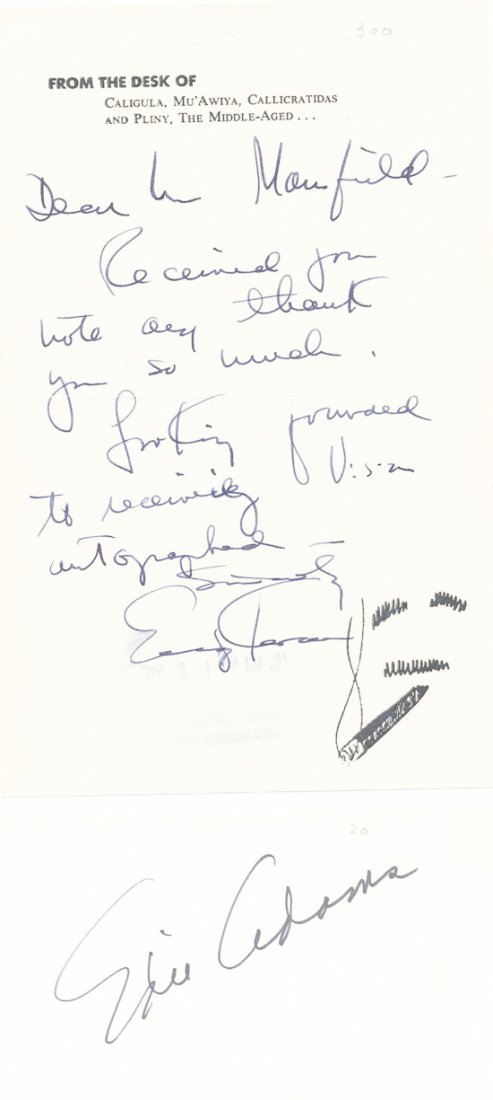 300
FROM THE DESK OF
CALIGULA, MU'AWIYA, CALLICRATIDAS
AND PLINY, THE MIDDLE-AGED...
Dear Mr Mansfield -
Received your
note and thank
you so much.
Looking forward
to receiving
autographed
Sincerely
20
Edie Adams